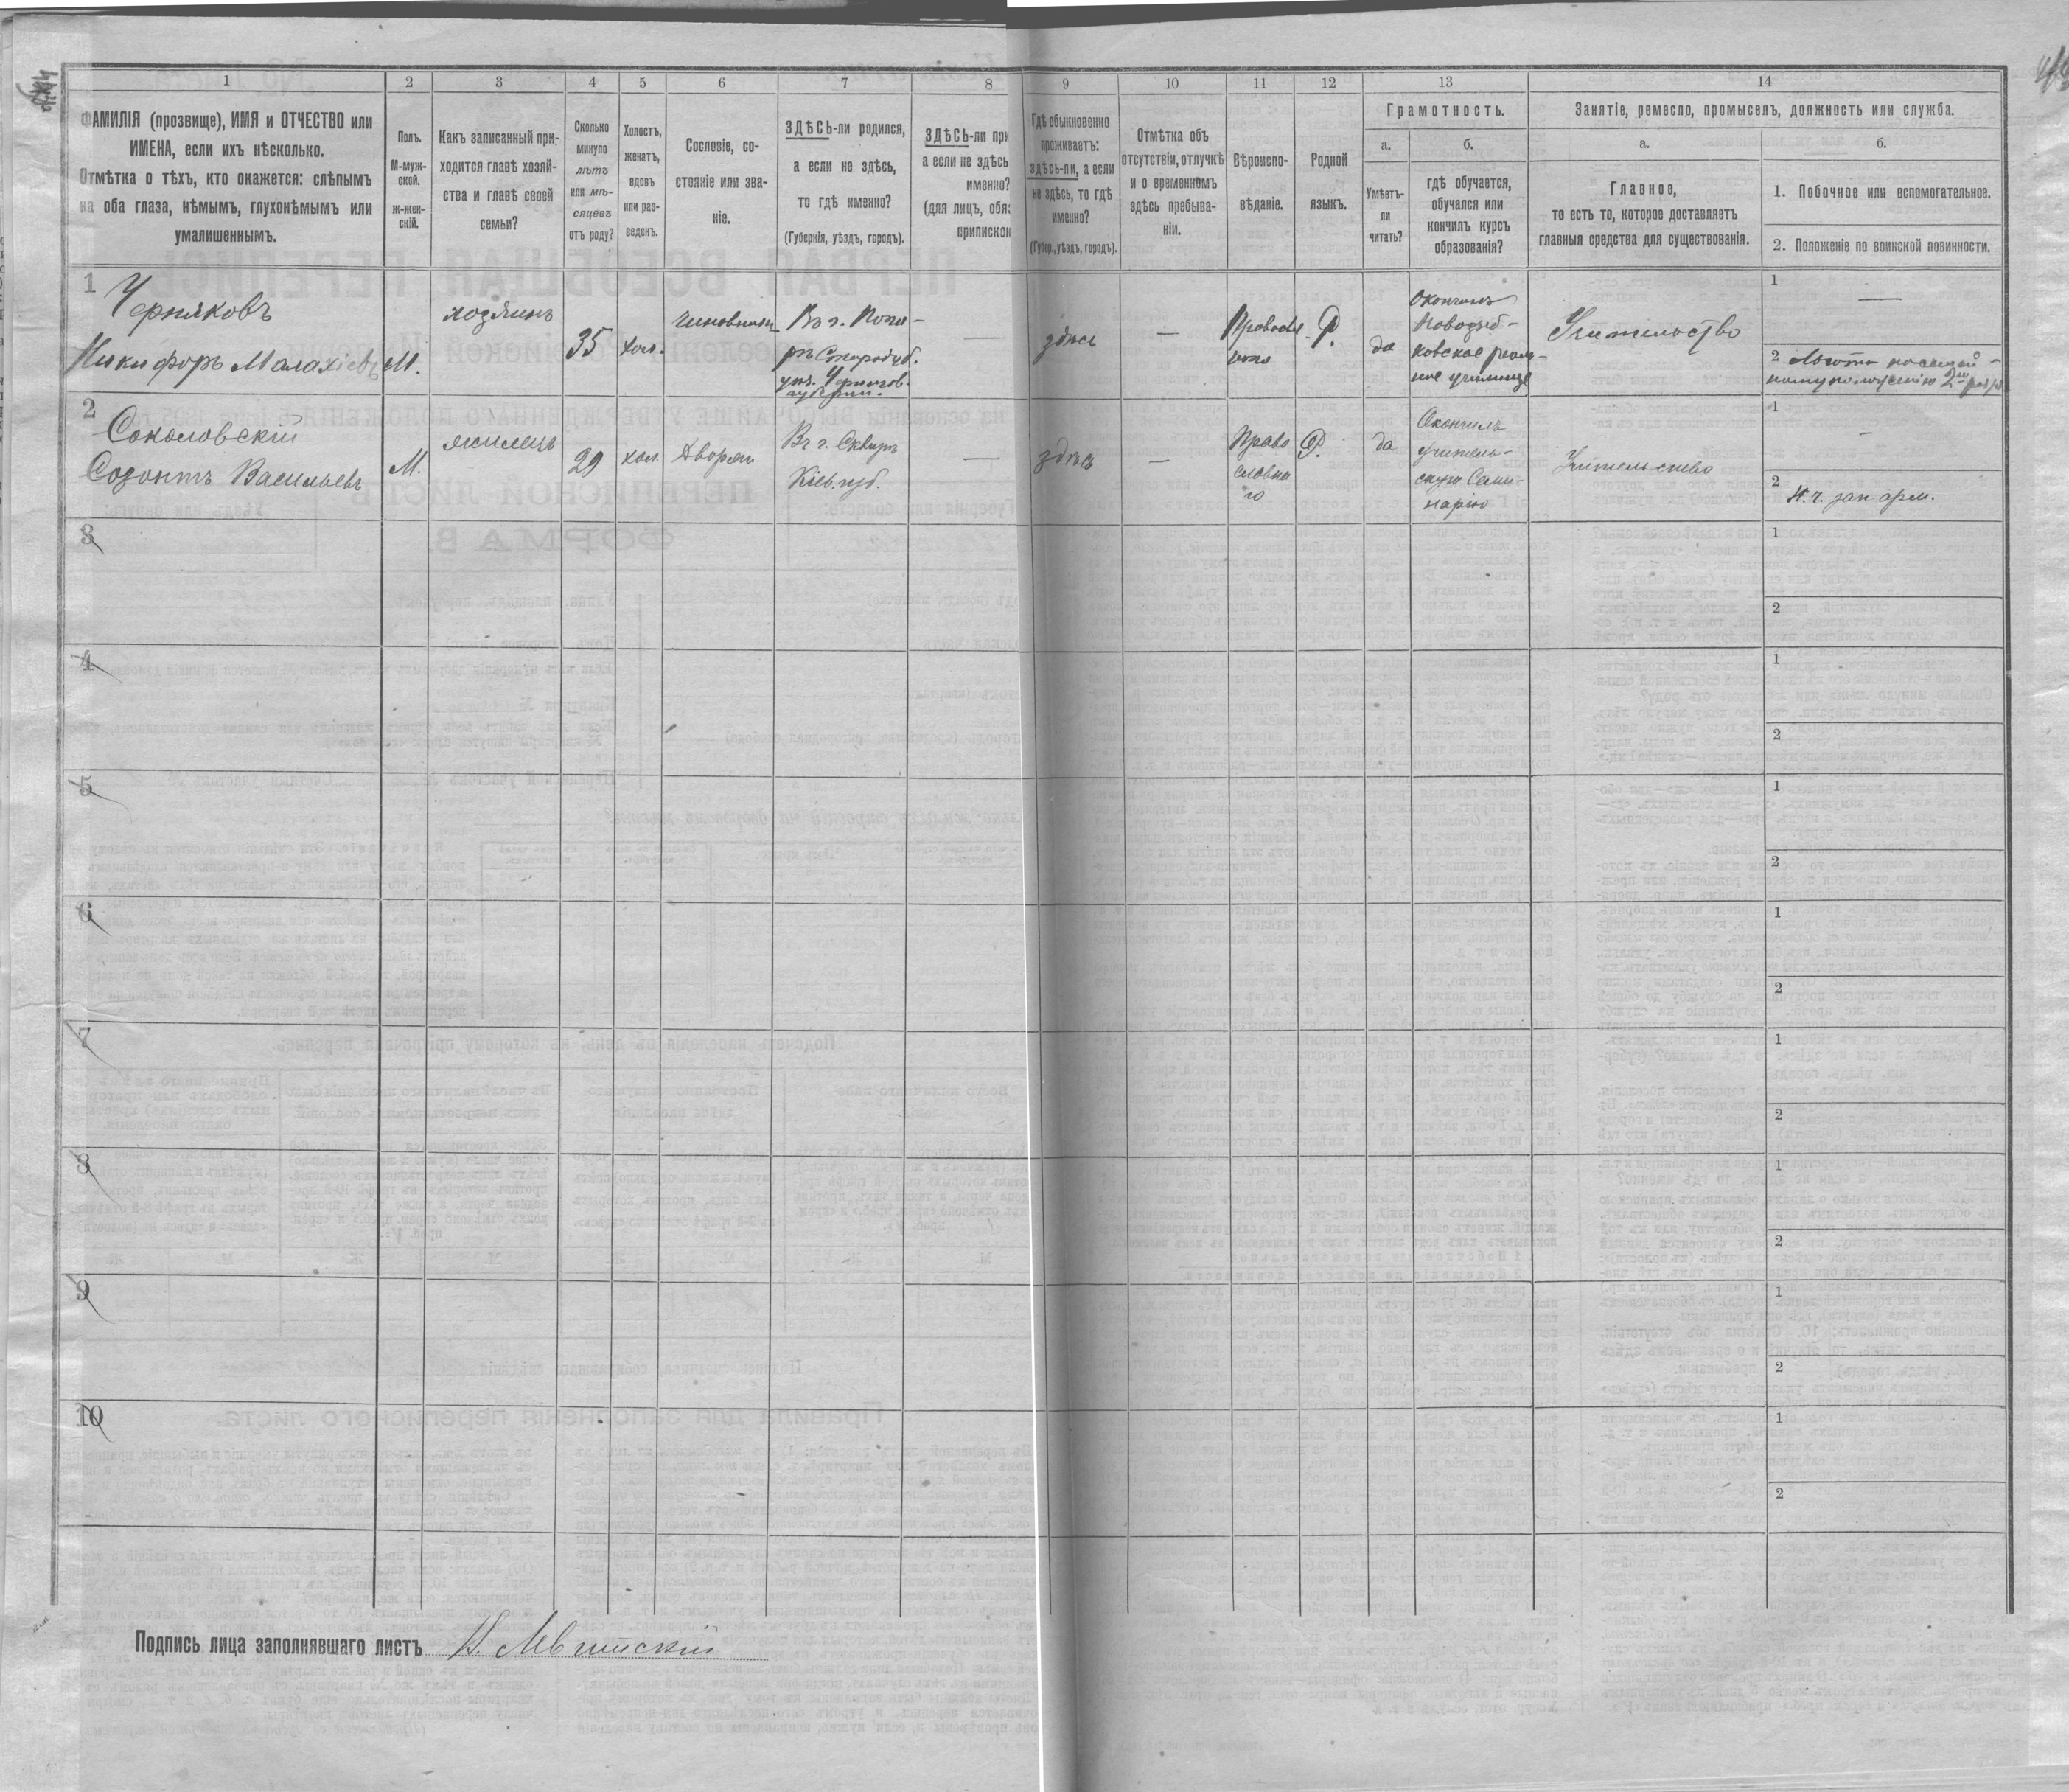 1 2 3 4 5 6 7 8 9 10 11 12 13 14
ФАМИЛІЯ (прозвище), ИМЯ и ОТЧЕСТВО или
ИМЕНА, если ихъ нѣсколько.
Отмѣтка о тѣхъ, кто окажется: слѣпымъ
на оба глаза, нѣмымъ, глухонѣмымъ или
умалишеннымъ.
Полъ.
М-муж-
ской.
ж-жен-
скій.
Какъ записанный при-
ходится главѣ хозяй-
ства и главѣ своей
семьи?
Сколько
минуло
лѣтъ
или мѣ-
сяцевъ
отъ роду?
Холостъ,
женатъ,
вдовъ
или раз-
веденъ.
Сословіе, со-
стояніе или зва-
ніе.
ЗДѢСЬ-ли родился,
а если не здѣсь,
то гдѣ именно?
(Губернія, уѣздъ, городъ).
ЗДѢСЬ-ли при
а если не здѣсь
именно?
(для лицъ, обяз
припиской
Гдѣ обыкновенно
проживаетъ:
здѣсь-ли, а если
не здѣсь, то гдѣ
именно?
(Губер., уѣздъ, городъ).
Отмѣтка объ
отсутствіи, отлучкѣ
и о временномъ
здѣсь пребыва-
ніи.
Вѣроиспо-
вѣданіе.
Родной
языкъ.
Грамотность.
а.
Умѣетъ-
ли
читать?
б.
гдѣ обучается,
обучался или
кончилъ курсъ
образованія?
Занятіе, ремесло, промыселъ, должность или служба.
а.
Главное,
то есть то, которое доставляетъ
главныя средства для существованія.
б.
1. Побочное или вспомогательное.
2. Положеніе по воинской повинности.
1
Черняковъ
Никифоръ Малахіевъ
М.
хозяинъ
35
хол.
чиновникъ
Въ г. Пога-
рѣ Стародуб.
уѣз. Чернигов.
губерніи.
—
здѣсь
—
Р.
да
Окончилъ
Новозыб-
ковское реаль-
ное училище
Учительство
1
—
2
2
Соколовскій
Созонтъ Васильевъ
М.
жилецъ
29
хол.
Дворян
Въ г. Сквирѣ
Кіев. губ.
—
здѣсь
—
Право
славна
го
Р.
да
Окончилъ
Учитель-
скую Семи-
нарію
Учительство
1
—
2
Н. ч. зап. арм.
3
1
2
4
1
2
5
1
2
6
1
2
7
1
2
8
1
2
9
1
2
10
1
2
Подпись лица заполнявшаго листъ